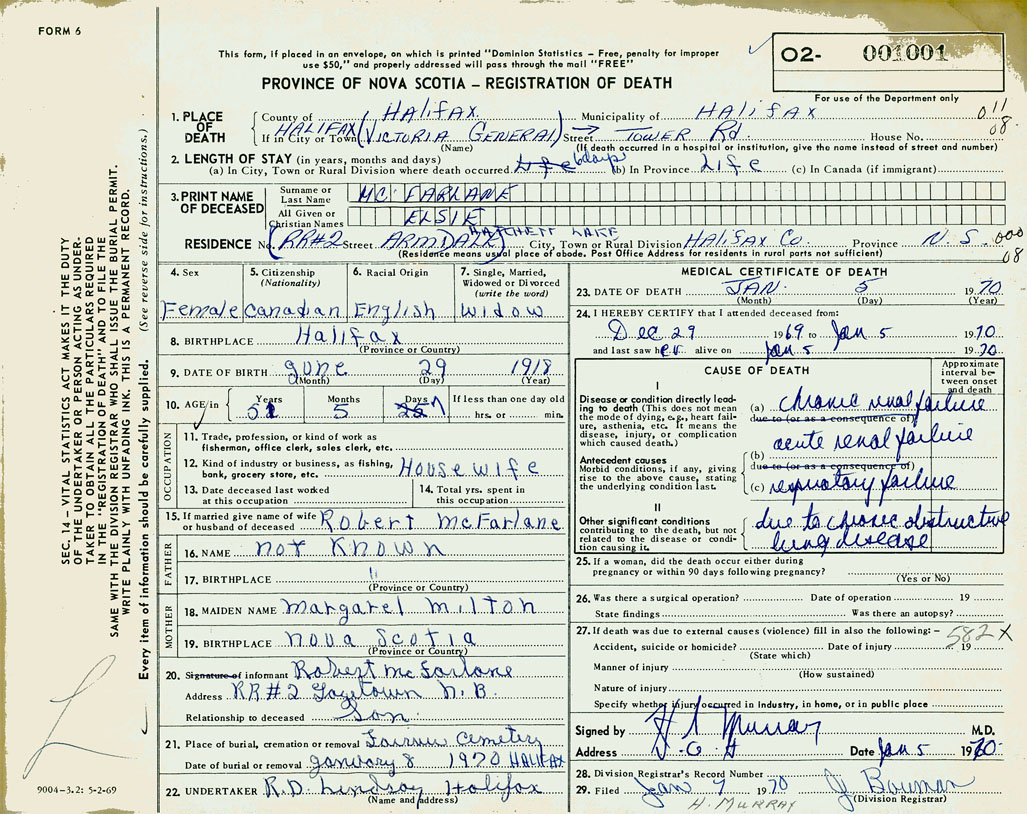 FORM 6
This form, if placed in an envelope, on which is printed "Dominion Statistics – Free, penalty for improper
use $50," and properly addressed will pass through the mail "FREE"
O2- 001001
PROVINCE OF NOVA SCOTIA – REGISTRATION OF DEATH
For use of the Department only
1. PLACE OF DEATH County of Halifax Municipality of Halifax 011
If in City or Town HALIFAX (VICTORIA GENERAL) Street TOWER Rd House No. 08
(Name) (If death occurred in a hospital or institution, give the name instead of street and number)
2. LENGTH OF STAY (in years, months and days)
(a) In City, Town or Rural Division where death occurred Life 6 days (b) In Province Life (c) In Canada (if immigrant)
3. PRINT NAME OF DECEASED Surname or Last Name MC FARLANE
All Given or Christian Names ELSIE
HATCHETT LAKE
RESIDENCE No. (RR#2 Street ARMDALE) City, Town or Rural Division Halifax Co. Province N.S. 000
(Residence means usual place of abode. Post Office Address for residents in rural parts not sufficient) 08
4. Sex 5. Citizenship (Nationality) 6. Racial Origin 7. Single, Married, Widowed or Divorced (write the word)
Female Canadian English Widow
8. BIRTHPLACE Halifax
(Province or Country)
9. DATE OF BIRTH June 29 1918
(Month) (Day) (Year)
10. AGE in Years Months Days If less than one day old
51 5 7 hrs. or min.
OCCUPATION
11. Trade, profession, or kind of work as
fisherman, office clerk, sales clerk, etc.
12. Kind of industry or business, as fishing,
bank, grocery store, etc. Housewife
13. Date deceased last worked
at this occupation
14. Total yrs. spent in
this occupation
15. If married give name of wife
or husband of deceased Robert McFarlane
FATHER
16. NAME not Known
17. BIRTHPLACE "
(Province or Country)
MOTHER
18. MAIDEN NAME Margaret Milton
19. BIRTHPLACE Nova Scotia
(Province or Country)
20. Signature of informant Robert McFarlane
Address RR#2 Gagetown N.B.
Relationship to deceased Son
21. Place of burial, cremation or removal Fairview Cemetery
Date of burial or removal January 8 1970 HALIFAX
22. UNDERTAKER R.D. Lindsay Halifax
(Name and address)
MEDICAL CERTIFICATE OF DEATH
23. DATE OF DEATH JAN. 5 1970
(Month) (Day) (Year)
24. I HEREBY CERTIFY that I attended deceased from:
Dec 29 1969 to Jan 5 1970
and last saw her alive on Jan 5 1970
CAUSE OF DEATH
Approximate interval between onset and death
I
Disease or condition directly leading to death (This does not mean
the mode of dying, e.g., heart failure, asthenia, etc. It means the
disease, injury, or complication
which caused death.)
(a) chronic renal failure
due to (or as a consequence of)
acute renal failure
Antecedent causes
Morbid conditions, if any, giving
rise to the above cause, stating
the underlying condition last.
(b)
due to (or as a consequence of)
(c) respiratory failure
II
Other significant conditions
contributing to the death, but not
related to the disease or condition causing it.
due to chronic obstructive
lung disease
25. If a woman, did the death occur either during
pregnancy or within 90 days following pregnancy?
(Yes or No)
26. Was there a surgical operation? Date of operation 19
State findings Was there an autopsy?
27. If death was due to external causes (violence) fill in also the following: – 582X
Accident, suicide or homicide? Date of injury 19
(State which)
Manner of injury
(How sustained)
Nature of injury
Specify whether injury occurred in Industry, in home, or in public place
Signed by H S Murray M.D.
Address V.G.H Date Jan 5 1970
28. Division Registrar's Record Number
29. Filed Jan 7 1970 J Bowman
H. MURRAY (Division Registrar)
SEC. 14 – VITAL STATISTICS ACT MAKES IT THE DUTY
OF THE UNDERTAKER OR PERSON ACTING AS UNDER-
TAKER TO OBTAIN ALL THE PARTICULARS REQUIRED
IN THE "REGISTRATION OF DEATH" AND TO FILE THE
SAME WITH THE DIVISION REGISTRAR WHO SHALL ISSUE THE BURIAL PERMIT.
WRITE PLAINLY WITH UNFADING INK. THIS IS A PERMANENT RECORD.
Every item of information should be carefully supplied. (See reverse side for instructions.)
9004–3.2: 5-2-69